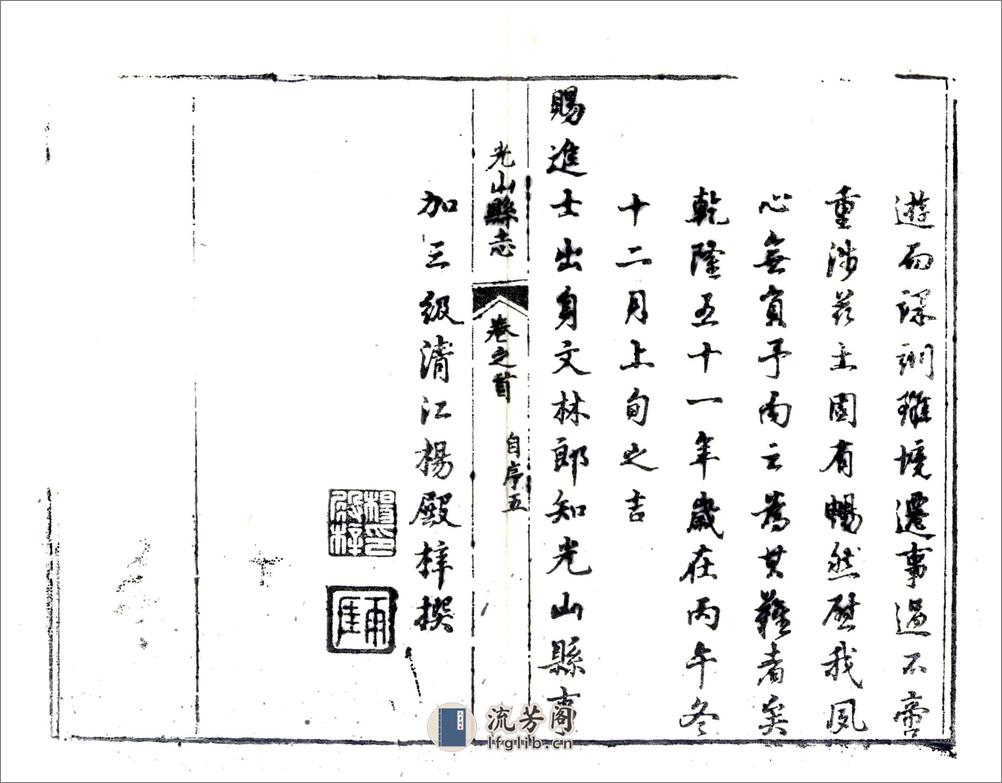 遊而課訓雖境遷事過不啻
重涉茲土固有暢然慰我夙
心無負予而云為其難者矣
乾隆五十一年歲在丙午冬
十二月上旬之吉
賜進士出身文林郎知光山縣事
光山縣志 卷之首 自序五
加三級清江楊殿梓撰
楊印殿梓
流芳阁
lfglib.cn